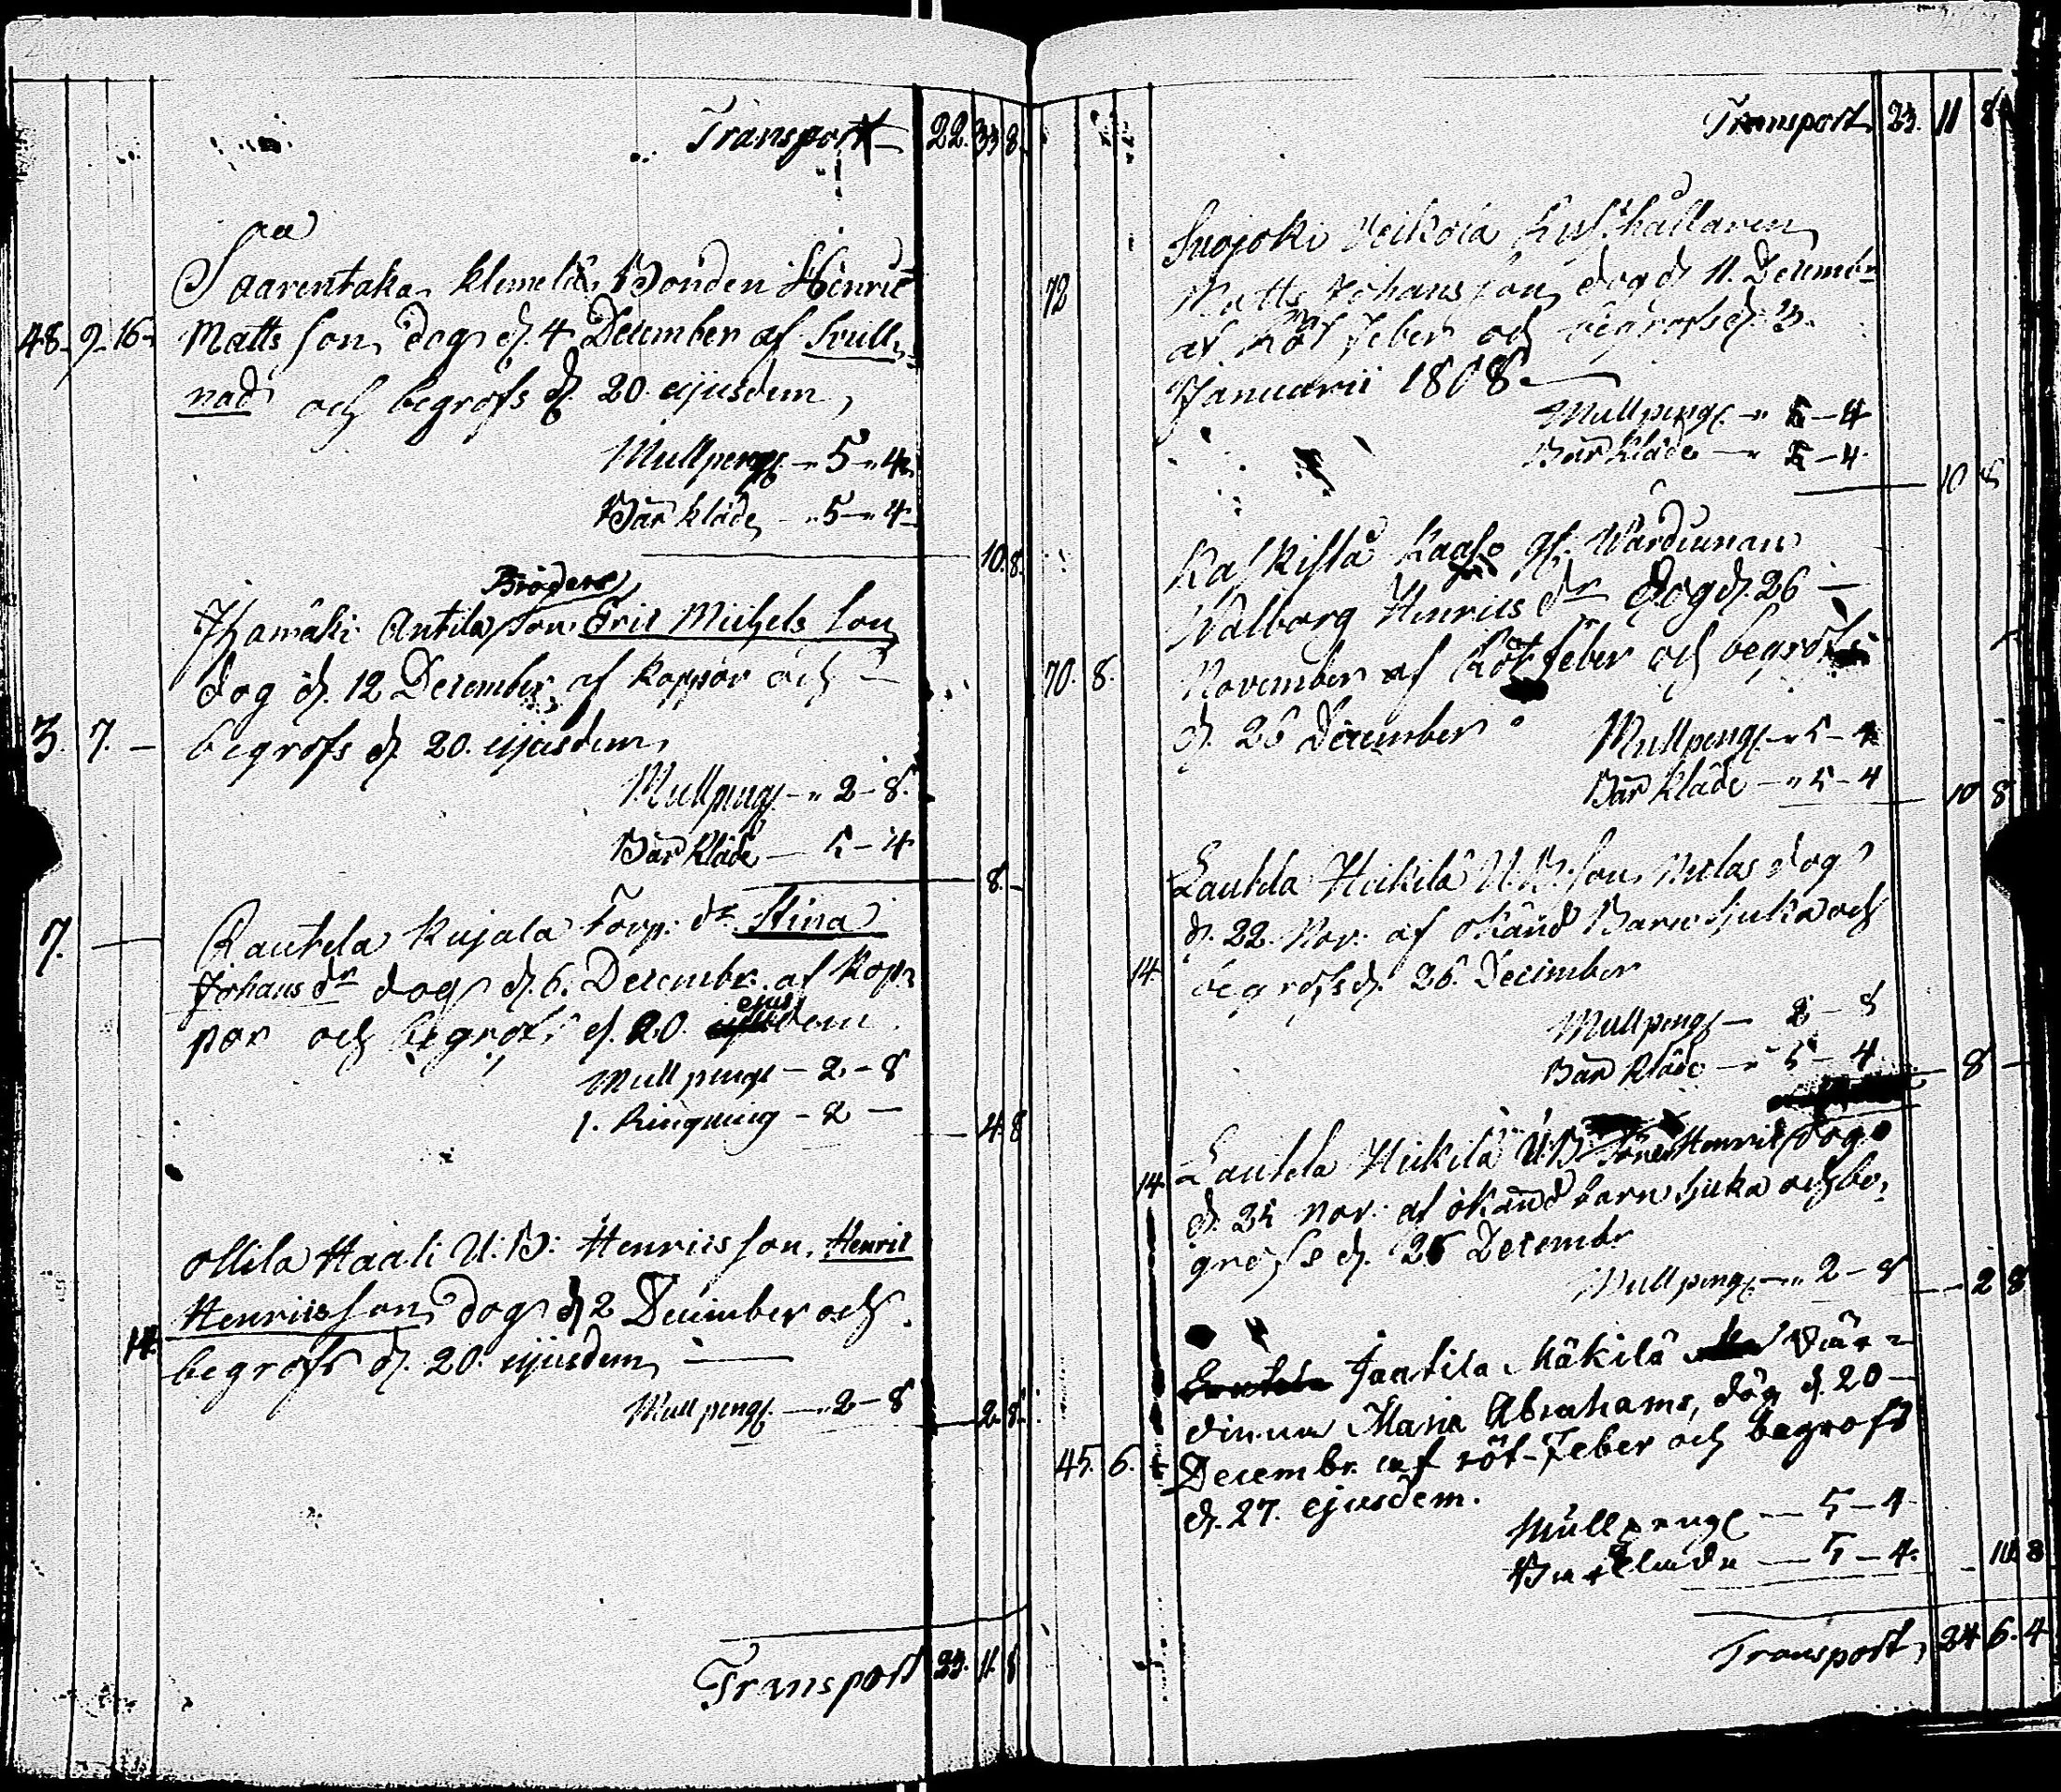 Transport 22. 33 8.
aa
Saarentaka Klemelä Bonden Henric
48. 9. 16. Matts son dog d. 4 December af Svull-
nad och begrofs d. 20 ejusdem,
Mullpeng. - " 5 - " 4.
Bår kläde - " 5 - " 4
10. 8.
Bröders
Ihamäki Antila son Eric Michels son
dog d. 12 December af koppor och
3. 7. - begrofs d. 20. ejusdem,
Mullpeng. - " 2 - 8.
Bår kläde - 5 - 4
8. -
7. - Rautela Kujala Torp. dr Stina
Johans dr dog d. 6. Decembr. af Kop-
ejus
por och begrofs d. 20 dem
Mull peng - 2 - 8
1. Ringning - 2 -
4. 8
Ollila Haali U: B: Henrics son, Henric
14. Henrics son dog d. 2 December och
begrofs d. 20. ejusdem, -
Mull peng. - " 2 - 8
2. 8.
Transport 23. 11. 8
Transport 23. 11 8.
Suojoki Heikola Husshållaren
72 Matts Johans son dog d. 11. Decembr
af Röt feber och begrofs d. 3.
Januarii 1808. -
Mullpeng. - " 5 - 4
Bår kläde - " 5 - 4.
10 8
Kaskista Kaaso gl. Wärdinnan
Walborg Henrics dr dog d. 26 -
70. 8. November af Rötfeber och begrofs
d. 26 December
Mullpeng. - " 5 - 4
Bår kläde - " 5 - 4
10 8
Lautela Heikilä U. B. son Niclas dog
d. 22. Nov. af okänd Barnsjuka och
14. begrofs d. 26. December
Mullpeng - 2 - 8
Bår kläde - " 5 - 4
8 -
14. Lautela Heikilä U. B. Henric dog
d. 25 Nov. af okänd barnsjuka och be-
grofs d. 26 Decembr
Mullpeng. - " 2 - 8
2 8
Jaatila Mäkilä Vär-
dinna Maria Abrahams, dög d. 20 -
45. 6. Decembr. af röt-Feber och begrofs
d. 27. ejusdem.
Mullpeng - 5 - 4
Barkläde - 5 - 4.
10 8
Transport, 24 6. 4